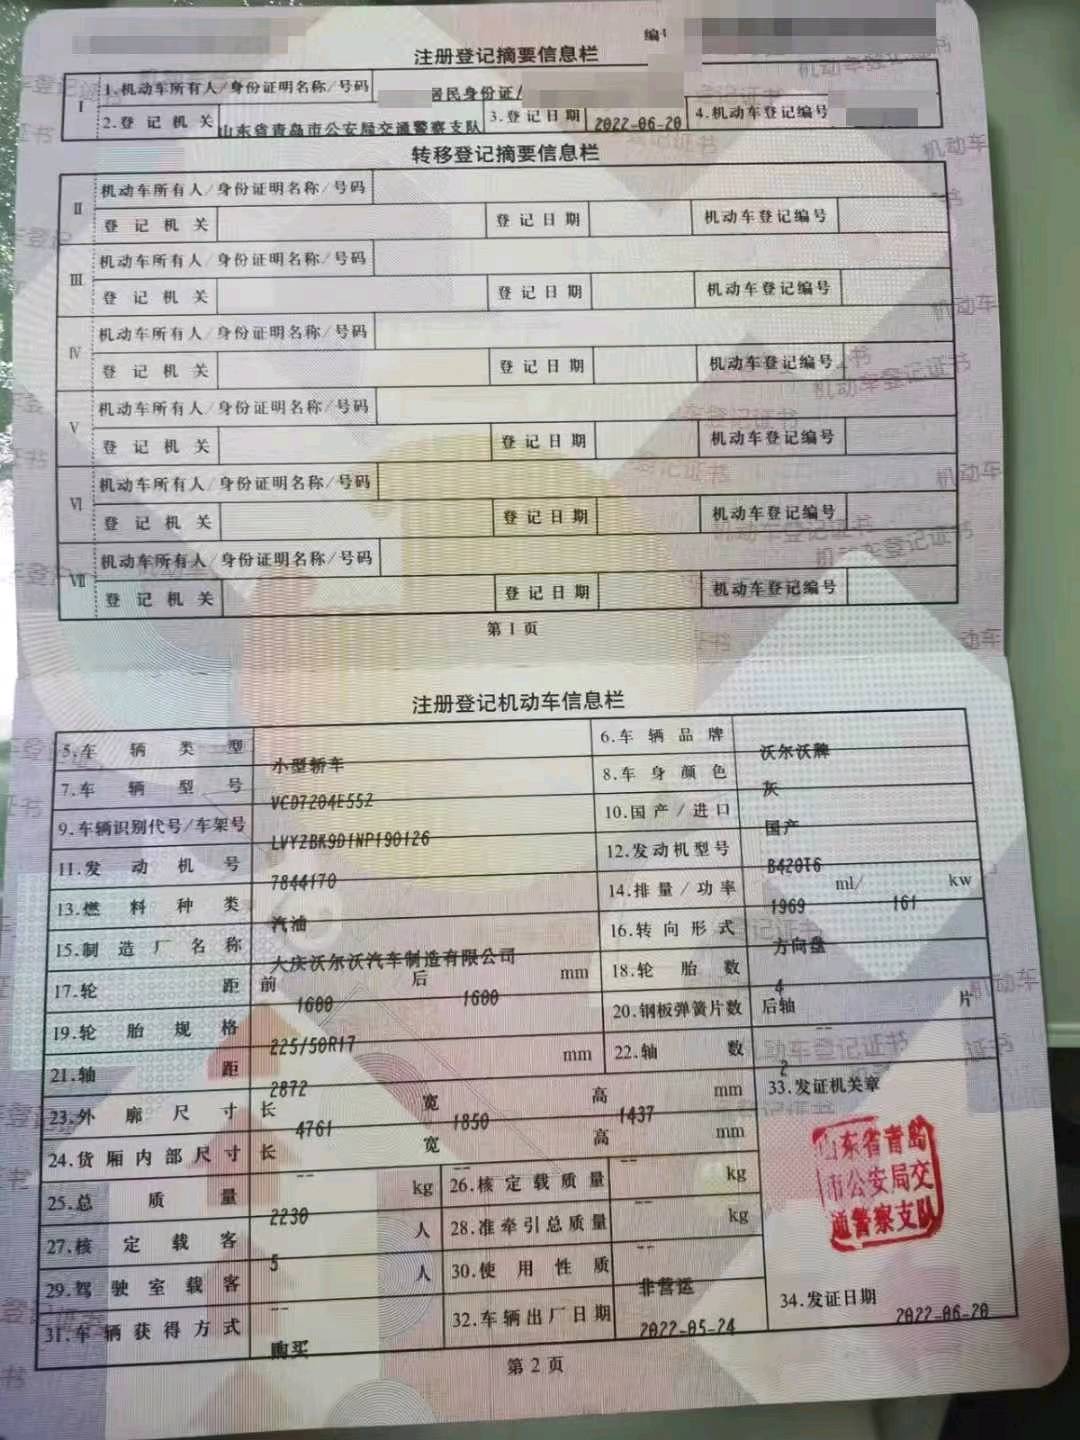 编号
注册登记摘要信息栏
I 1.机动车所有人/身份证明名称/号码 居民身份证/
2.登记机关 山东省青岛市公安局交通警察支队 3.登记日期 2022-06-20 4.机动车登记编号
转移登记摘要信息栏
II 机动车所有人/身份证明名称/号码
登记机关 登记日期 机动车登记编号
III 机动车所有人/身份证明名称/号码
登记机关 登记日期 机动车登记编号
IV 机动车所有人/身份证明名称/号码
登记机关 登记日期 机动车登记编号
V 机动车所有人/身份证明名称/号码
登记机关 登记日期 机动车登记编号
VI 机动车所有人/身份证明名称/号码
登记机关 登记日期 机动车登记编号
VII 机动车所有人/身份证明名称/号码
登记机关 登记日期 机动车登记编号
第 1 页
注册登记机动车信息栏
5.车辆类型 小型轿车 6.车辆品牌 沃尔沃牌
7.车辆型号 VCD7204E55Z 8.车身颜色 灰
9.车辆识别代号/车架号 LVYZBK9D1NP190126 10.国产/进口 国产
11.发动机号 7844170 12.发动机型号 B420T6
13.燃料种类 汽油 14.排量/功率 1969 ml/ 161 kw
15.制造厂名称 大庆沃尔沃汽车制造有限公司 16.转向形式 方向盘
17.轮距 前 1600 后 1600 mm 18.轮胎数 4
19.轮胎规格 225/50R17 20.钢板弹簧片数 后轴 -- 片
21.轴距 2872 mm 22.轴数 2
23.外廓尺寸 长 4761 宽 1850 高 1437 mm 33.发证机关章
24.货厢内部尺寸 长 -- 宽 -- 高 -- mm
25.总质量 2230 kg 26.核定载质量 -- kg
27.核定载客 5 人 28.准牵引总质量 -- kg
29.驾驶室载客 -- 人 30.使用性质 非营运
31.车辆获得方式 购买 32.车辆出厂日期 2022-05-24 34.发证日期 2022-06-20
山东省青岛
市公安局交
通警察支队
第 2 页